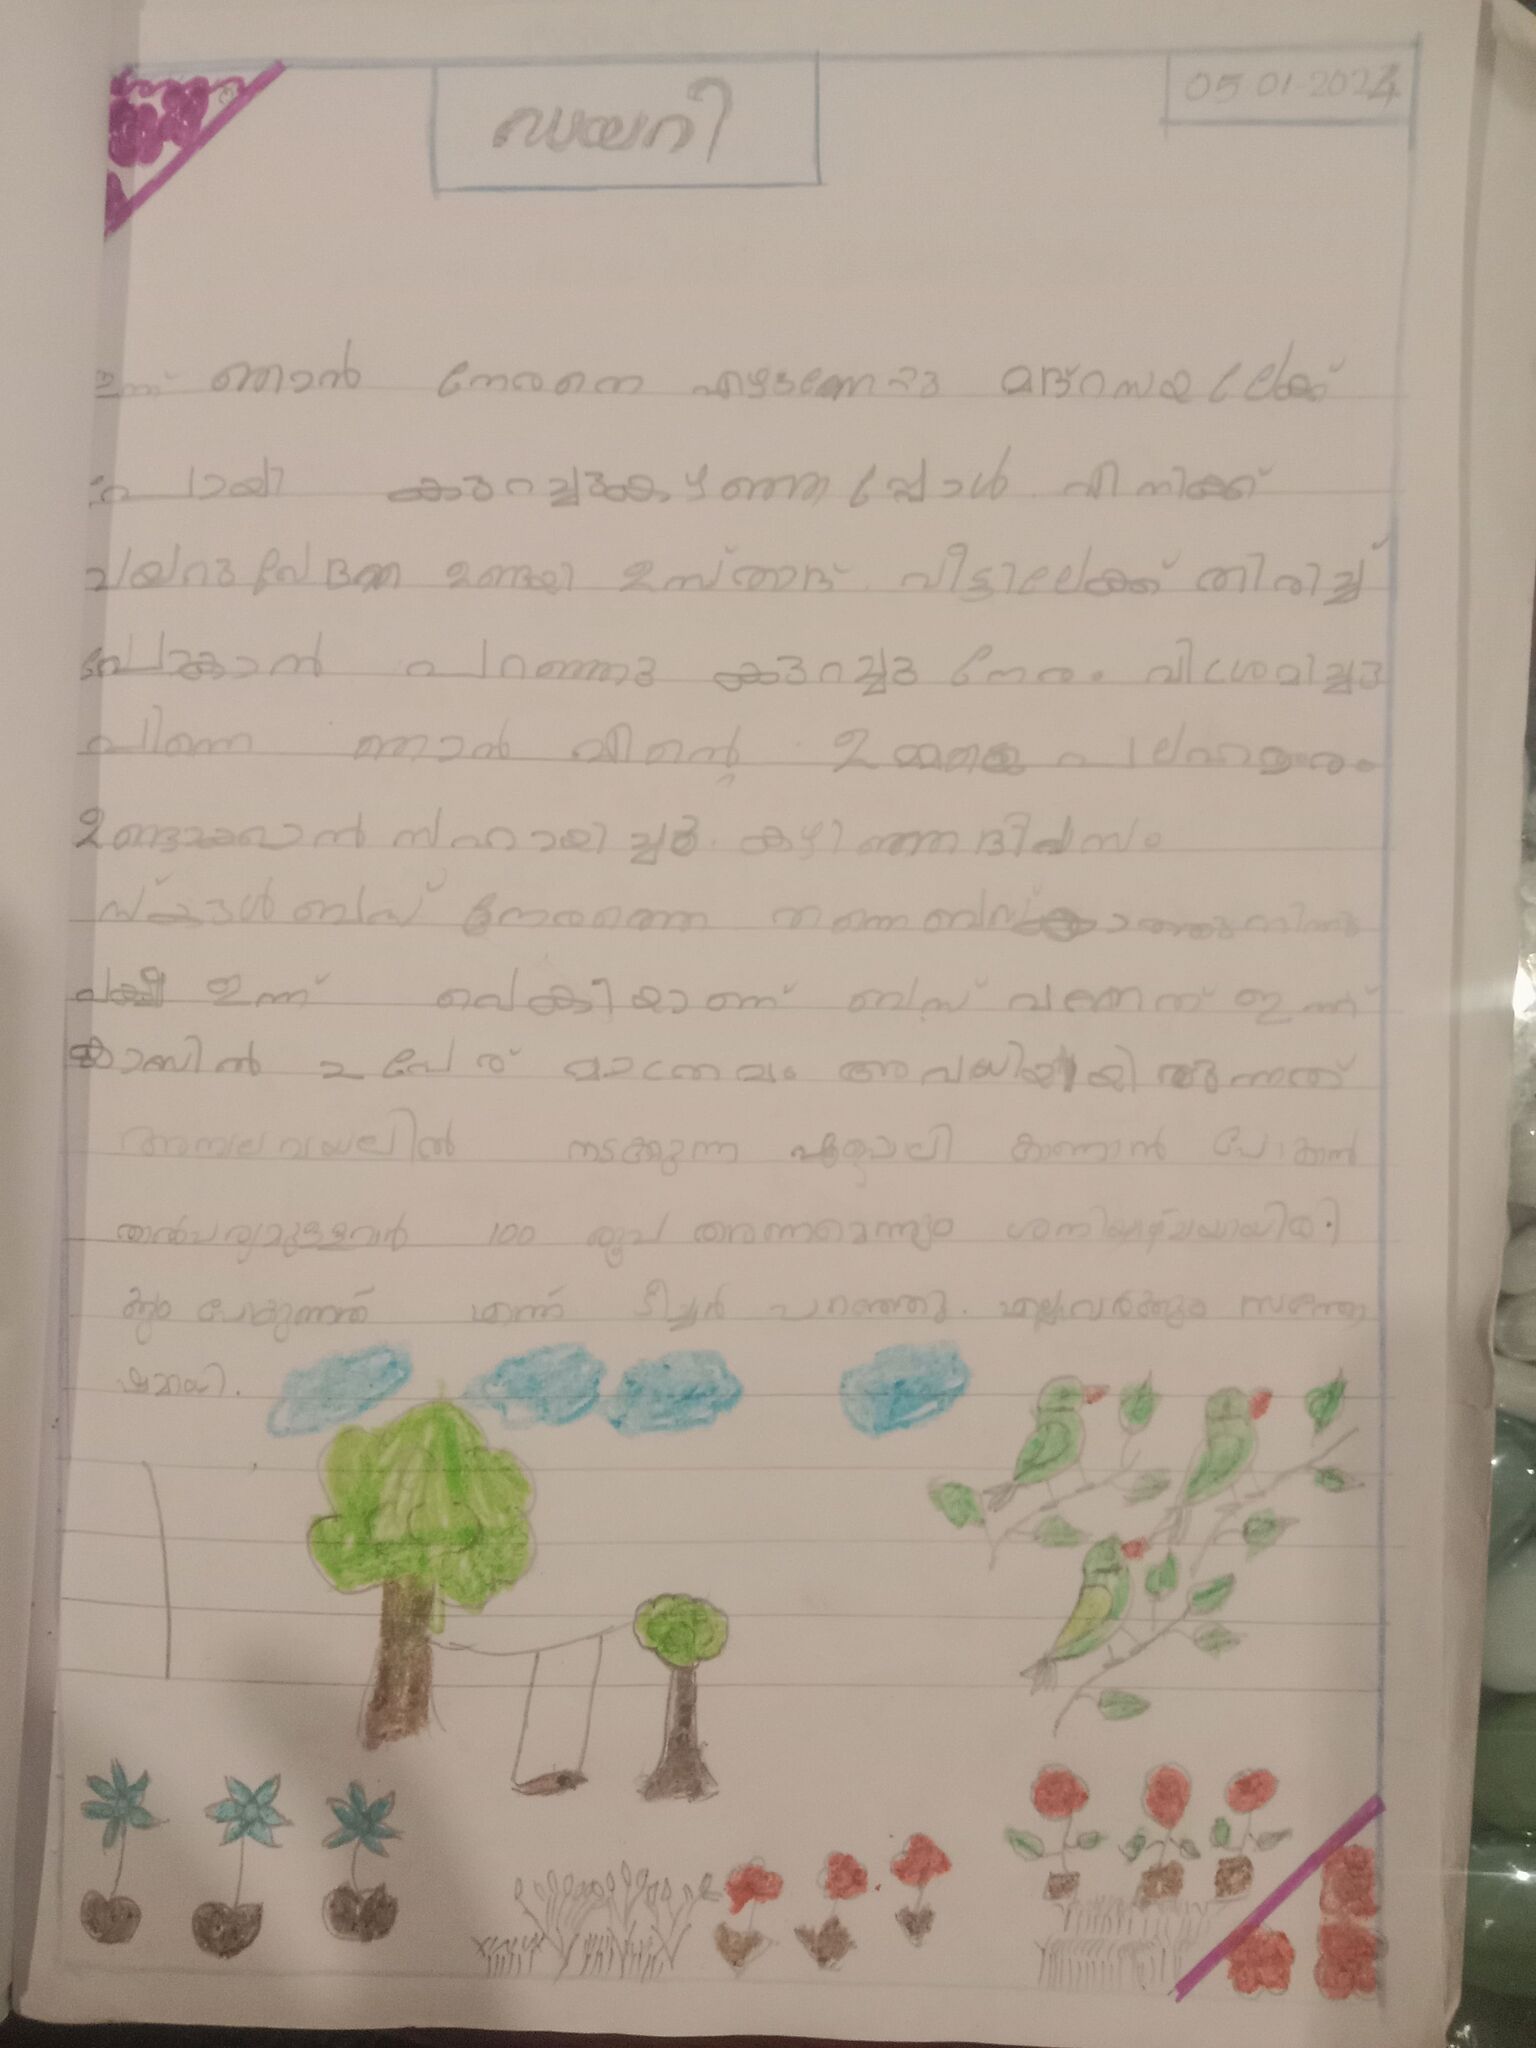 ഡയറി
05-01-2024
ഇന്ന് ഞാൻ നേരത്തെ എഴുന്നേറ്റു മദ്റസയിലേക്ക്
പോയി കുറച്ചുകഴിഞ്ഞപ്പോൾ എനിക്ക്
വയറുവേദന ഉണ്ടായി ഉസ്താദ് വീട്ടിലേക്ക് തിരിച്ച്
പോകാൻ പറഞ്ഞു കുറച്ചു നേരം വിശ്രമിച്ചു
പിന്നെ ഞാൻ എന്റെ ഉമ്മയെ പലഹാരം
ഉണ്ടാക്കുവാൻ സഹായിച്ചു. കഴിഞ്ഞ ദിവസം
സ്കൂൾ ബസ് നേരത്തെ തന്നെ ബസ് കാത്തുനിന്നു
പക്ഷേ ഇന്ന് വൈകിയാണ് ബസ് വന്നത് ഇന്ന്
ക്ലാസിൽ 2 പേര് മാത്രം
അമ്പലവയലിൽ നടക്കുന്ന പൂപ്പൊലി കാണാൻ പോകാൻ
താൽപര്യമുള്ളവർ 100 രൂപ തരണമെന്നും
പോകുന്നത് എന്ന് ടീച്ചർ പറഞ്ഞു. എല്ലാവർക്കും സന്തോ
ഷമായി.